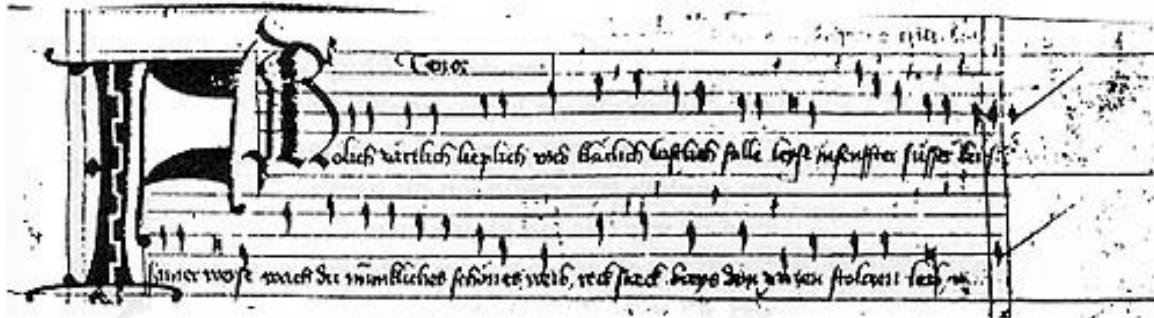 Tenor
FRolich zärtlich lieplich vnd klärlich lustlich stille leyse in senffter süsser keusch
sainer weyse wach du minnikliches schönes weib, reck streck. breys dein zarten stolczen leib,